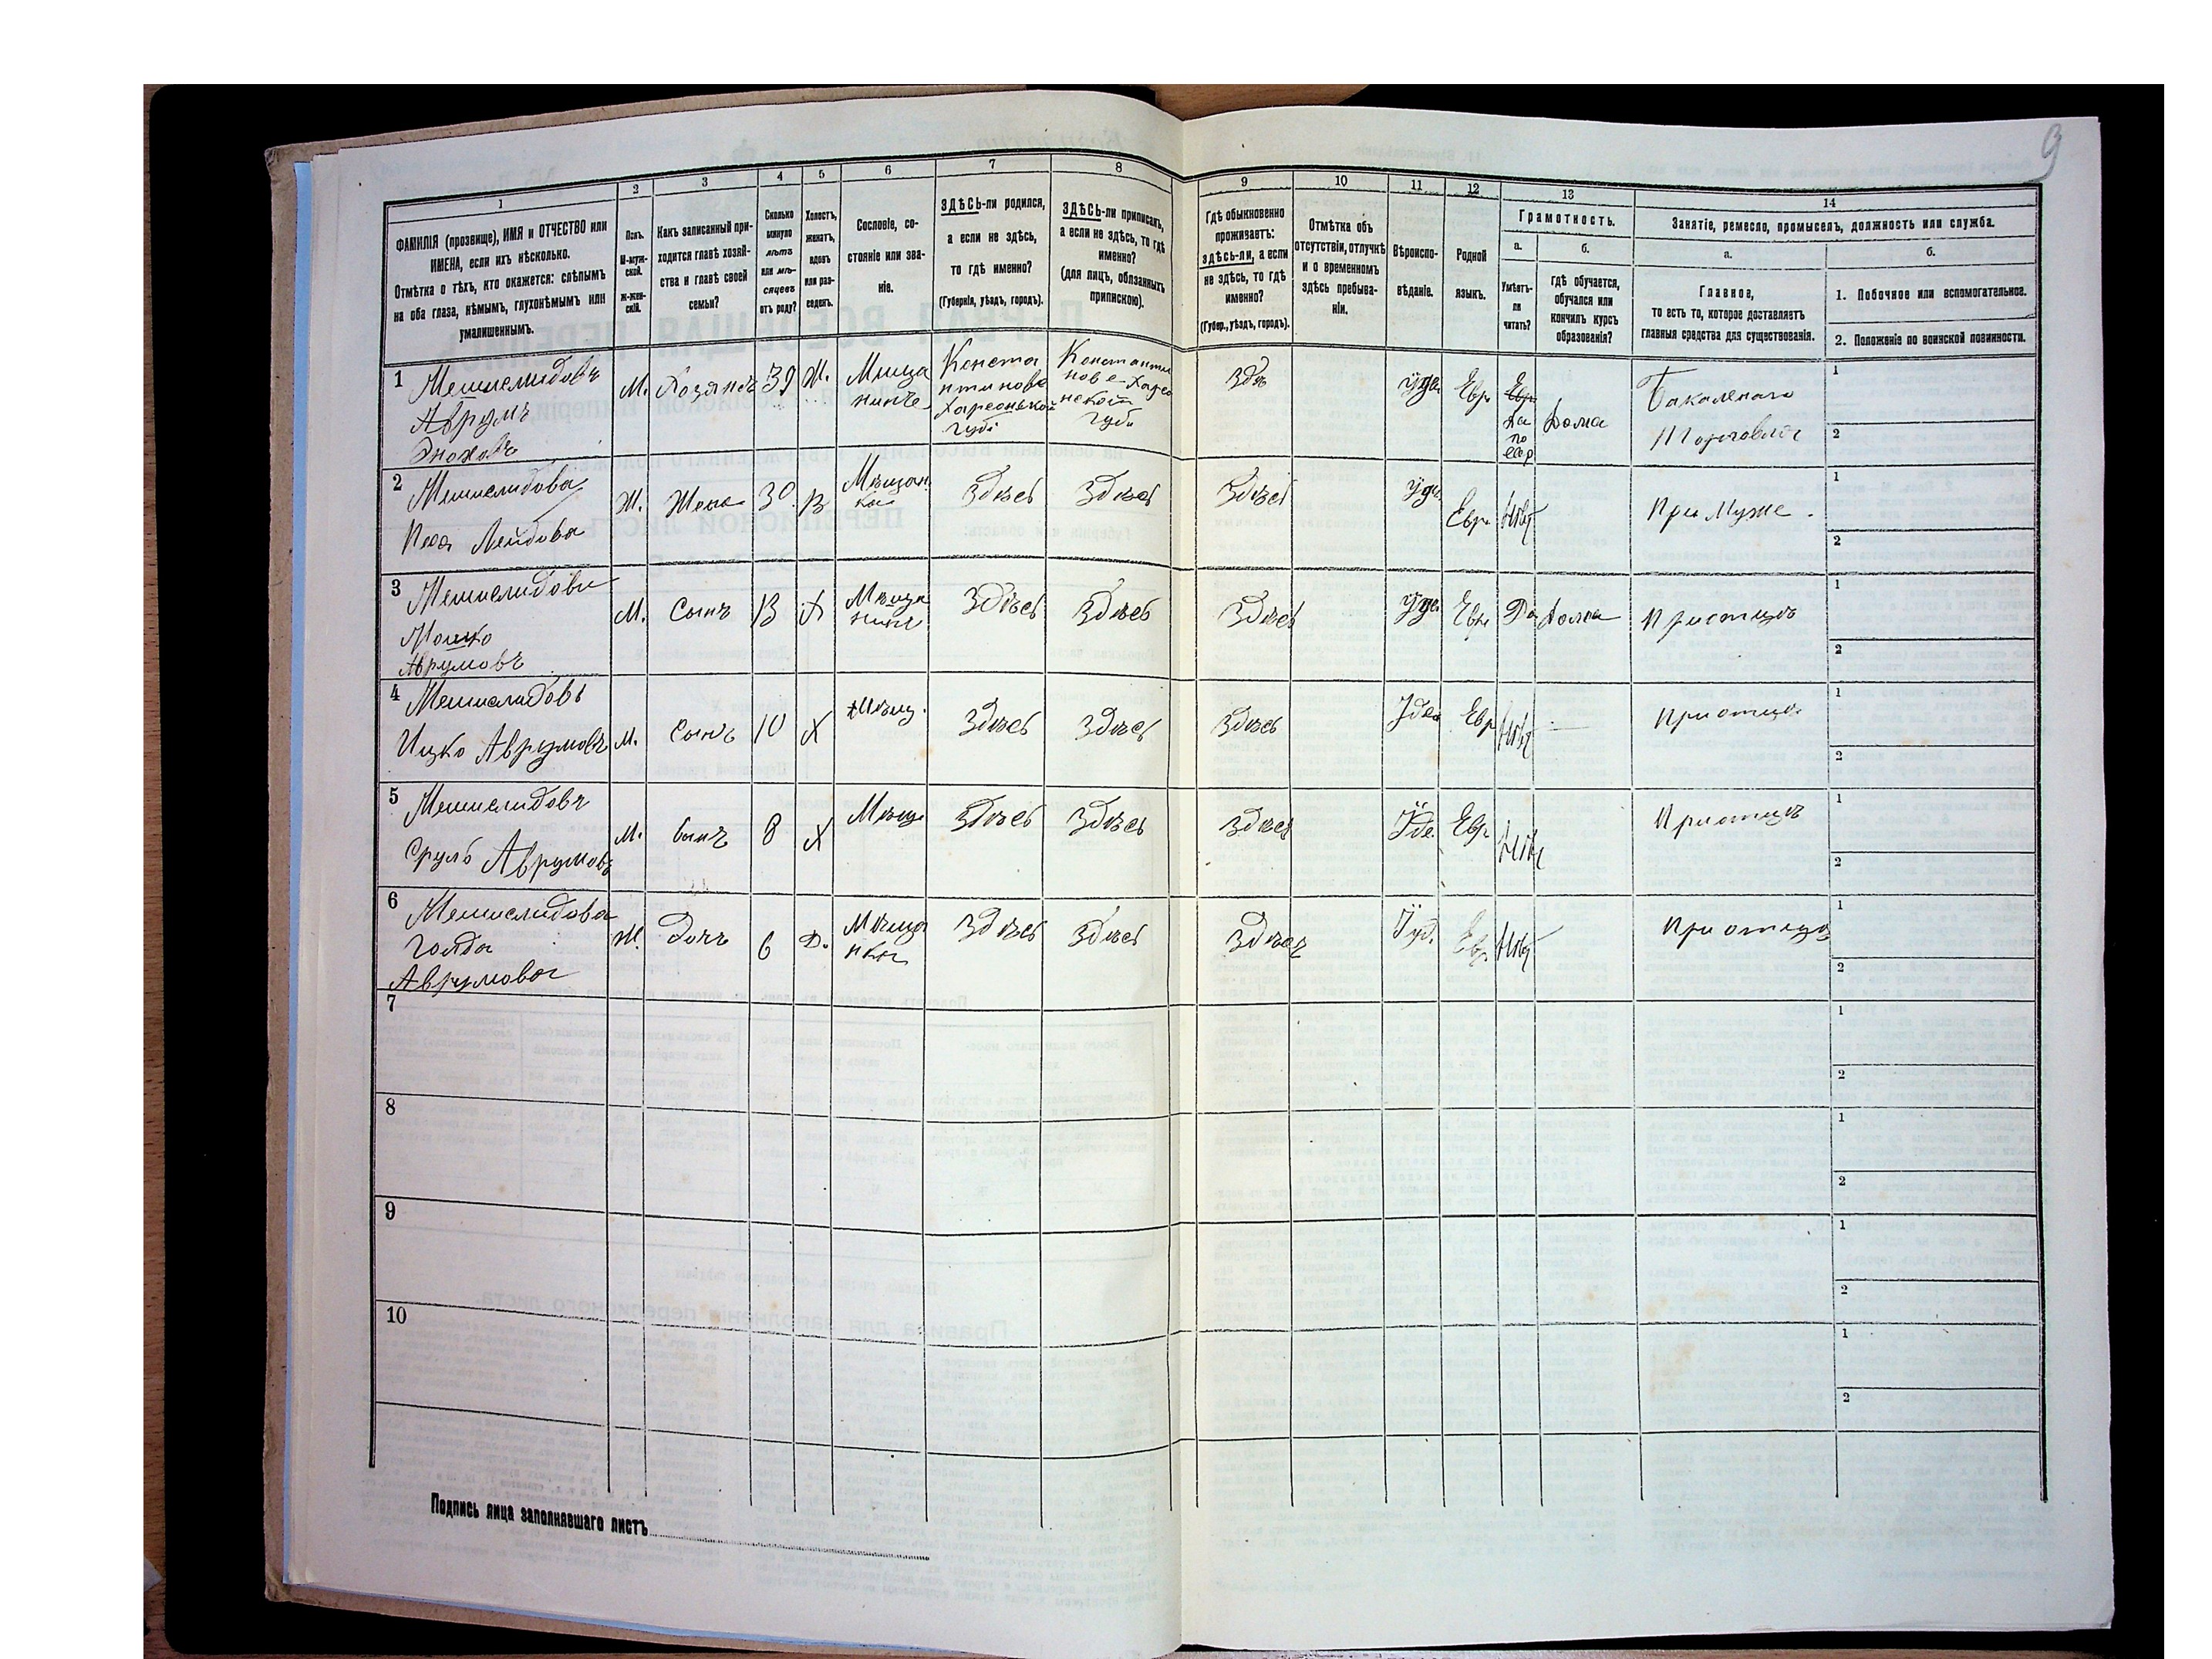 9
1
2
3
4
5
6
7
8
9
10
11
12
13
14
ФАМИЛІЯ (прозвище), ИМЯ и ОТЧЕСТВО или
ИМЕНА, если ихъ нѣсколько.
Отмѣтка о тѣхъ, кто окажется: слѣпымъ
на оба глаза, нѣмымъ, глухонѣмымъ или
умалишеннымъ.
Полъ.
М-муж-
ской.
Ж-жен-
скій.
Какъ записанный при-
ходится главѣ хозяй-
ства и главѣ своей
семьи?
Сколько
минуло
лѣтъ
или мѣ-
сяцевъ
отъ роду?
Холостъ,
женатъ,
вдовъ
или раз-
веденъ.
Сословіе, со-
стояніе или зва-
ніе.
ЗДѢСЬ-ли родился,
а если не здѣсь,
то гдѣ именно?
(Губернія, уѣздъ, городъ).
ЗДѢСЬ-ли приписанъ,
а если не здѣсь, то гдѣ
именно?
(для лицъ, обязанныхъ
припискою).
Гдѣ обыкновенно
проживаетъ:
здѣсь-ли, а если
не здѣсь, то гдѣ
именно?
(Губер., уѣздъ, городъ).
Отмѣтка объ
отсутствіи, отлучкѣ
и о временномъ
здѣсь пребыва-
ніи.
Вѣроиспо-
вѣданіе.
Родной
языкъ.
Грамотность.
а.
б.
Умѣетъ-
ли
читать?
гдѣ обучается,
обучался или
кончилъ курсъ
образованія?
Занятіе, ремесло, промыселъ, должность или служба.
а.
б.
Главное,
то есть то, которое доставляетъ
главныя средства для существованія.
1. Побочное или вспомогательное.
2. Положеніе по воинской повинности.
1
Мешислидовъ
Аврумъ
Эноховъ
М.
Хозяинъ
39
Ж.
Мища
нинъ
Конста
нтиново
Харсонской
губ.
Константи
нов
губ.
Здѣ
Іуде
Евр
Да
по
евр
Дома
Бакалейная
Торговля
1
2
2
Мешислидова
Лейдова
Ж.
Жена
30
Мѣщан
ка
Здѣсь
Здѣсь
Здѣсь
Іуд.
Евр.
Нѣт
При Муже.
1
2
3
Мешислидовъ
Мошко
Аврумовъ
М.
Сынъ
13
Х
Мѣща
нинъ
Здѣсь
Здѣсь
Здѣсь
Іуде
Евр
Да
Дома
При отцѣ
1
2
4
Мешислидовъ
Ицко Аврумовъ
М.
Сынъ
10
Х
Мѣщ.
Здѣсь
Здѣсь
Здѣсь
Іуде
Евр
Нѣт
При отцѣ
1
2
5
Мешислидовъ
Сруль Аврумовъ
М.
Сынъ
8
Х
Мѣщ
Здѣсь
Здѣсь
Здѣсь
Іуде.
Евр
Нѣт
При отцѣ
1
2
6
Мешислидова
Голда
Аврумова
Ж.
Дочь
6
Д.
Мѣща
нка
Здѣсь
Здѣсь
Здѣсь
Іуд.
Евр
Нѣт
При отцѣ
1
2
7
1
2
8
1
2
9
1
2
10
1
2
Подпись лица заполнявшаго листъ